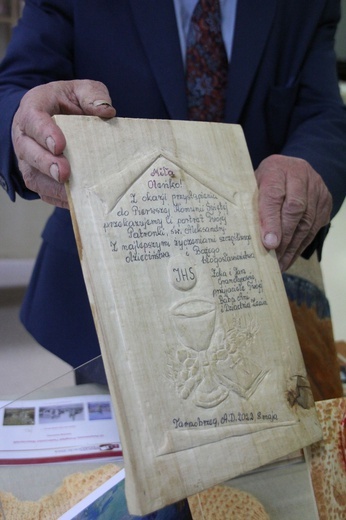 Miła
Oleńko!
Z okazji przystąpienia
do Pierwszej Komunii Świętej
przekazujemy Ci portret Twojej
Patronki, św. Aleksandry
Z najlepszymi życzeniami szczęśliwego
dzieciństwa i Bożego
błogosławieństwa
JHS
Zofia i Jerzy
przyjaciele Twojej
Babci Ani
i Dziadzia Lesia
Tarnobrzeg, A.D. 2022, 8 maja